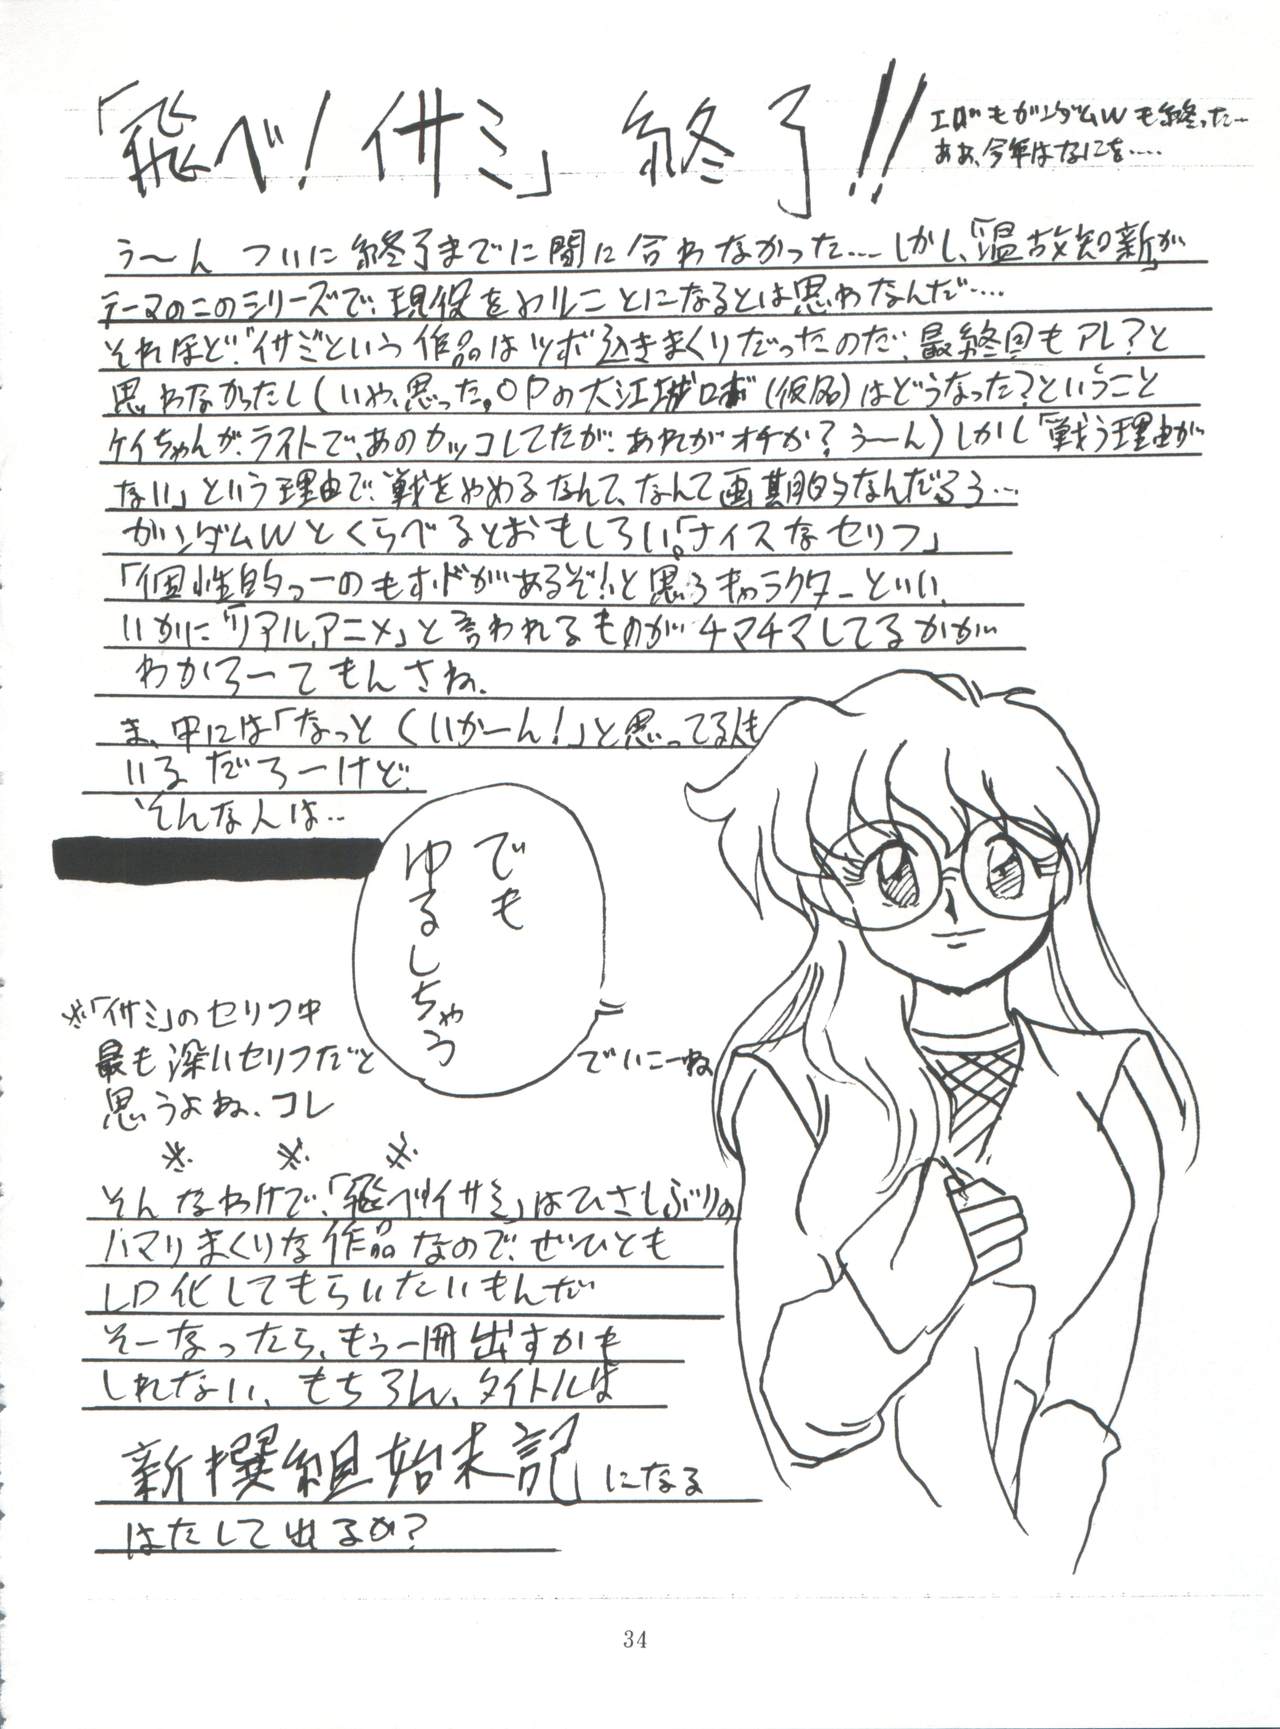 「飛べ!イサミ」終了!!
エヴァもガンダムWも終った…
ああ、今年はなにを‥‥
う〜ん ついに終了までに間に合わなかった…しかし、「温故知新」が
テーマのこのシリーズで、現役をやることになるとは思わなんだ‥‥
それほど「イサミ」という作品はツボ突きまくりだったのだ、最終回もアレ?と
思わなかったし(いや、思った。OPの大江城ロボ(仮名)はどうなった?ということと
ケイちゃんが、ライトで、あのカッコしてたが、あれがオチか?う〜ん)しかし「戦う理由が
ない」という理由で、戦をやめるなんて、なんて画期的なんだろう…
ガンダムWとくらべるとおもしろい。「ナイスなセリフ」
「個性的っーのもホドがあるぞ!」と思うキャラクターといい、
いかに「リアルアニメ」と言われるものがチマチマしてるかが
わかろーてもんさね、
ま、中には「なっとくいかーん!」と思ってる人も
いるだろーけど、
そんな人は‥
でも
ゆるしちゃう
でいこーね
※「イサミ」のセリフ中
最も深いセリフだと
思うよね、コレ
※ ※ ※
そんなわけで、「飛べ!イサミ」はひさしぶりの
ハマりまくりな作品なので、ぜひとも
LD化してもらいたいもんだ
そーなったら、もう一冊出すかも
しれない、もちろん、タイトルは
新撰組始末記になる
はたして出るか?
34